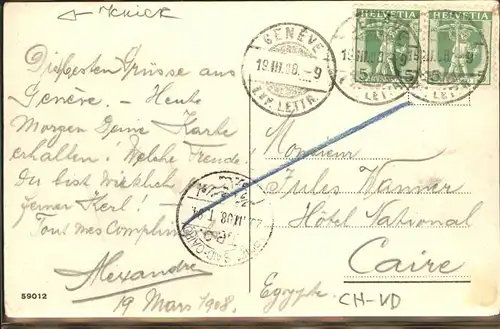 KNICK
Die besten Grüsse aus
Genève. — Heute
Morgen Deine Karte
erhalten! Welche Freude!
Du bist wirklich
Kerl! —
Tous mes Compliments
Alexandre
19 Mars 1908.
59012
GENÈVE
19.III.08.-9
EXP. LETTR.
HELVETIA
5
HELVETIA
5
GENÈVE
19.III.08.-9
EXP. LETTR.
Monsieur
Jules Wanner
Hôtel National
Caire
Egypte.
CH-VD